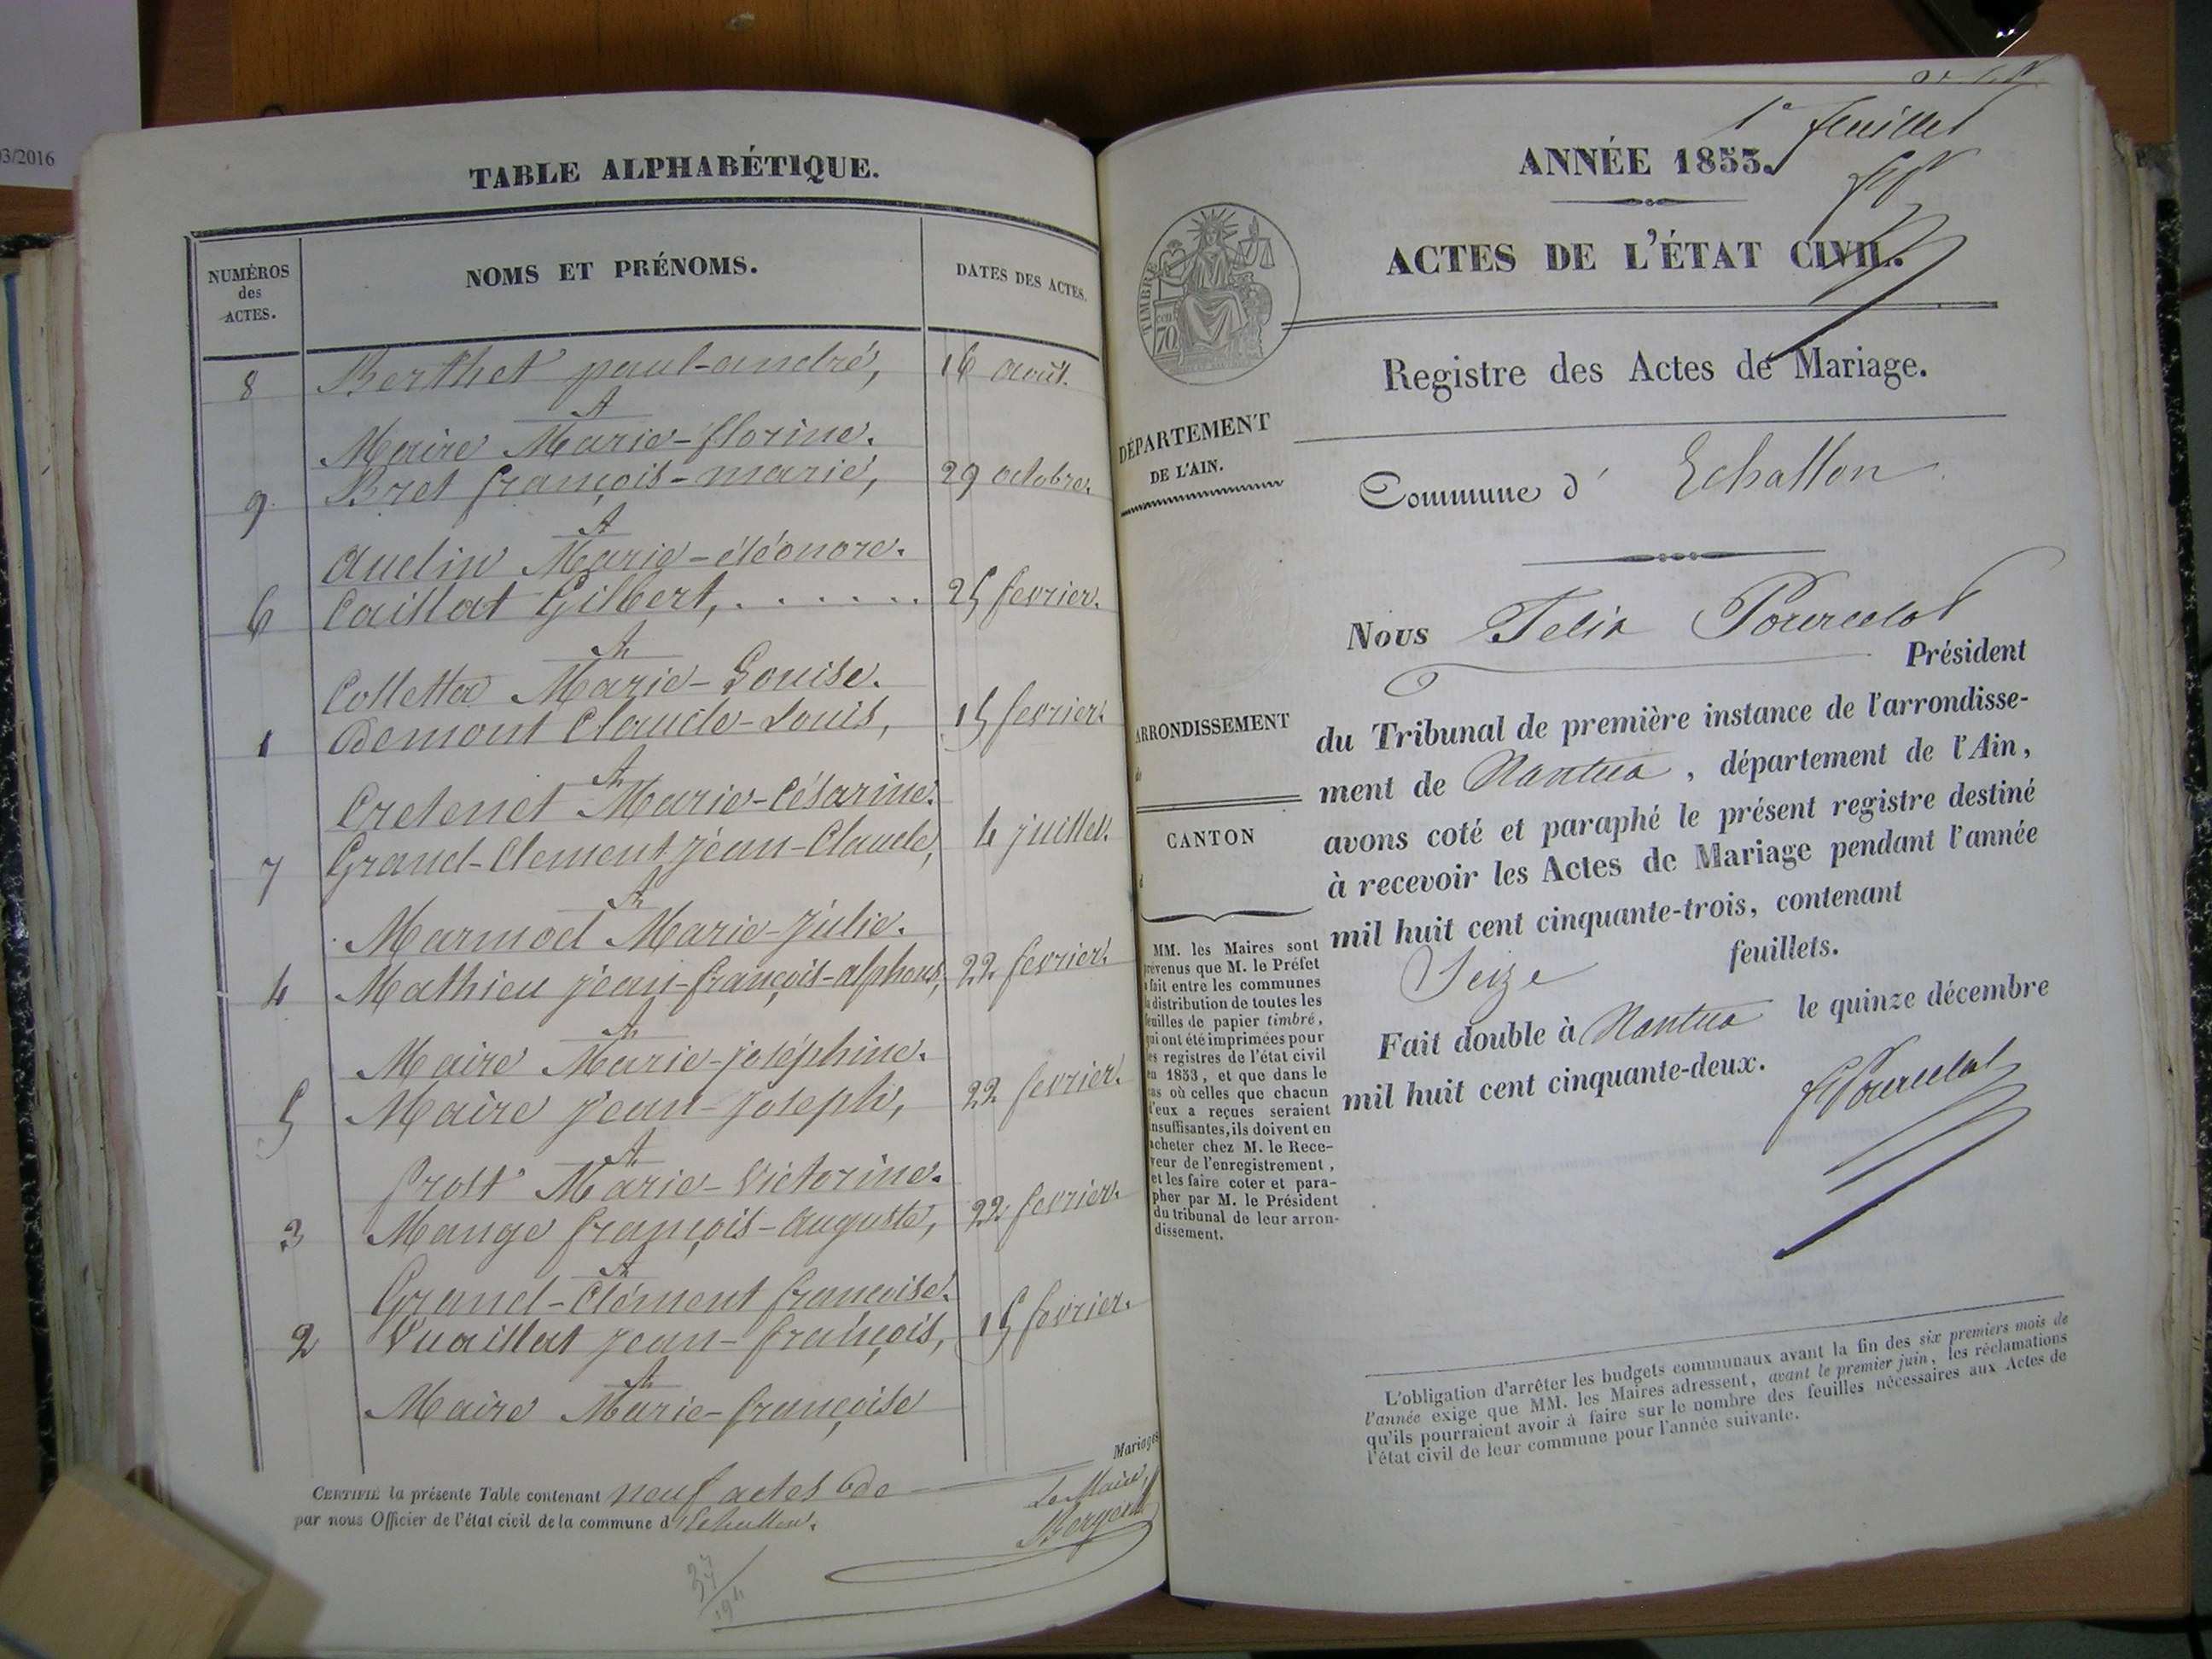 03/2016
TABLE ALPHABÉTIQUE.
NUMÉROS des ACTES.
NOMS ET PRÉNOMS.
DATES DES ACTES.
8 Berthet paul-andré, 16 août.
Et
Maire Marie-florine.
9 Bret françois-marie, 29 octobre.
Et
Audin Marie-éléonore.
6 Caillat Gilbert, . . . . . . . 25 fevrier.
Et
Colletta Marie-Louise.
1 Demont Claude-Louis, 15 fevrier.
Et
Cretenet Marie-Césarine.
7 Grand-Clement jean-Claude, 4 juillet.
Et
Marmod Marie-julie.
4 Mathieu jean-françois-alphonse, 22 fevrier.
Et
Maire Marie-joséphine.
5 Maire jean-joseph, 22 fevrier.
Et
prost Marie-Victorine.
3 Mange françois-auguste, 22 fevrier.
Et
Grand-Clément françoise.
2 Vuaillat jean-françois, 15 fevrier.
Et
Maire Marie-françoise
Mariages
CERTIFIÉ la présente Table contenant neuf actes de
par nous Officier de l'état civil de la commune d'Echallon.
Le Maire,
37
194
1e feuillet
ANNÉE 1853.
ACTES DE L'ÉTAT CIVIL.
TIMBRE
70
Registre des Actes de Mariage.
DÉPARTEMENT
DE L'AIN.
Commune d' Echallon
Nous Felix Pourcelot
Président
ARRONDISSEMENT
du Tribunal de première instance de l'arrondisse-
ment de Nantua, département de l'Ain,
avons coté et paraphé le présent registre destiné
à recevoir les Actes de Mariage pendant l'année
mil huit cent cinquante-trois, contenant
Seize feuillets.
Fait double à Nantua le quinze décembre
mil huit cent cinquante-deux.
F Pourcelot
CANTON
MM. les Maires sont
prévenus que M. le Préfet
a fait entre les communes
la distribution de toutes les
feuilles de papier timbré,
qui ont été imprimées pour
les registres de l'état civil
en 1853, et que dans le
cas où celles que chacun
d'eux a reçues seraient
insuffisantes, ils doivent en
acheter chez M. le Rece-
veur de l'enregistrement,
et les faire coter et para-
pher par M. le Président
du tribunal de leur arron-
dissement.
L'obligation d'arrêter les budgets communaux avant la fin des six premiers mois de
l'année exige que MM. les Maires adressent, avant le premier juin, les réclamations
qu'ils pourraient avoir à faire sur le nombre des feuilles nécessaires aux Actes de
l'état civil de leur commune pour l'année suivante.